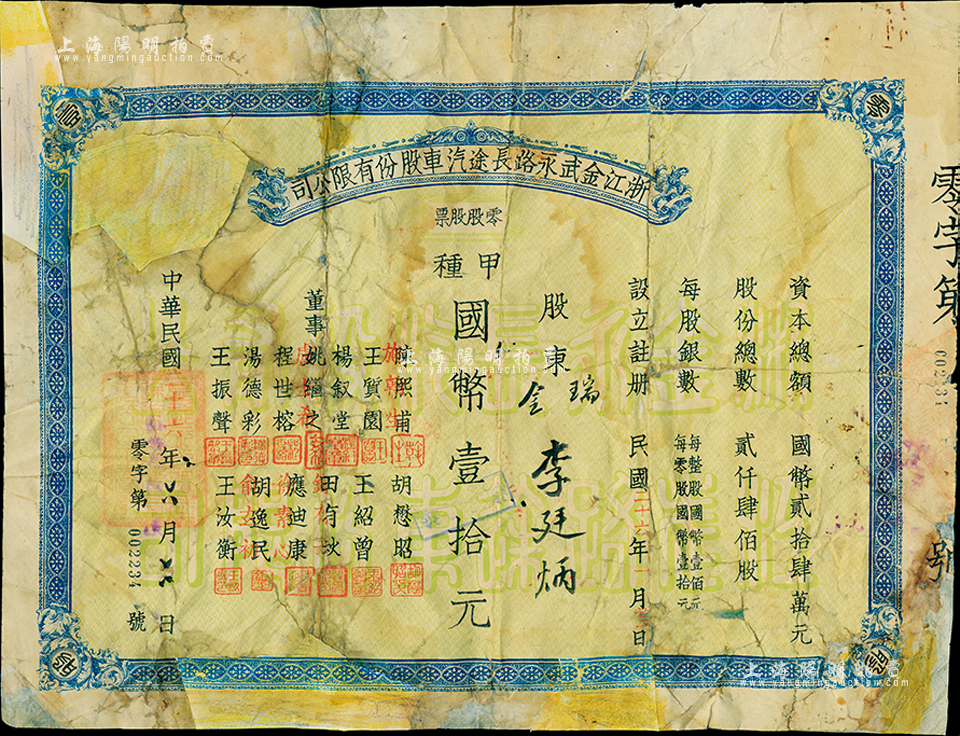 上海陽明拍賣
www.yangmingauction.com
浙江金武永路長途汽車股份有限公司
零股股票
甲種
資本總額 國幣貳拾肆萬元
股份總數 貳仟肆佰股
每股銀數 每整股國幣壹佰元
每零股國幣壹拾元
設立註册 民國二十六年 月 日
股東 李廷炳
國幣壹拾元
董事
陳熙甫 胡懋昭
王質園 王紹曾
楊叙堂
姚緇之
程世榕 應迪康
湯德彩 胡逸民
王振聲 王汝衡
中華民國 年 月 日
零字第 002234 號
零字第 號
上海陽明拍賣
www.yangmingauction.com
上海陽明拍賣
www.yangmingauction.com